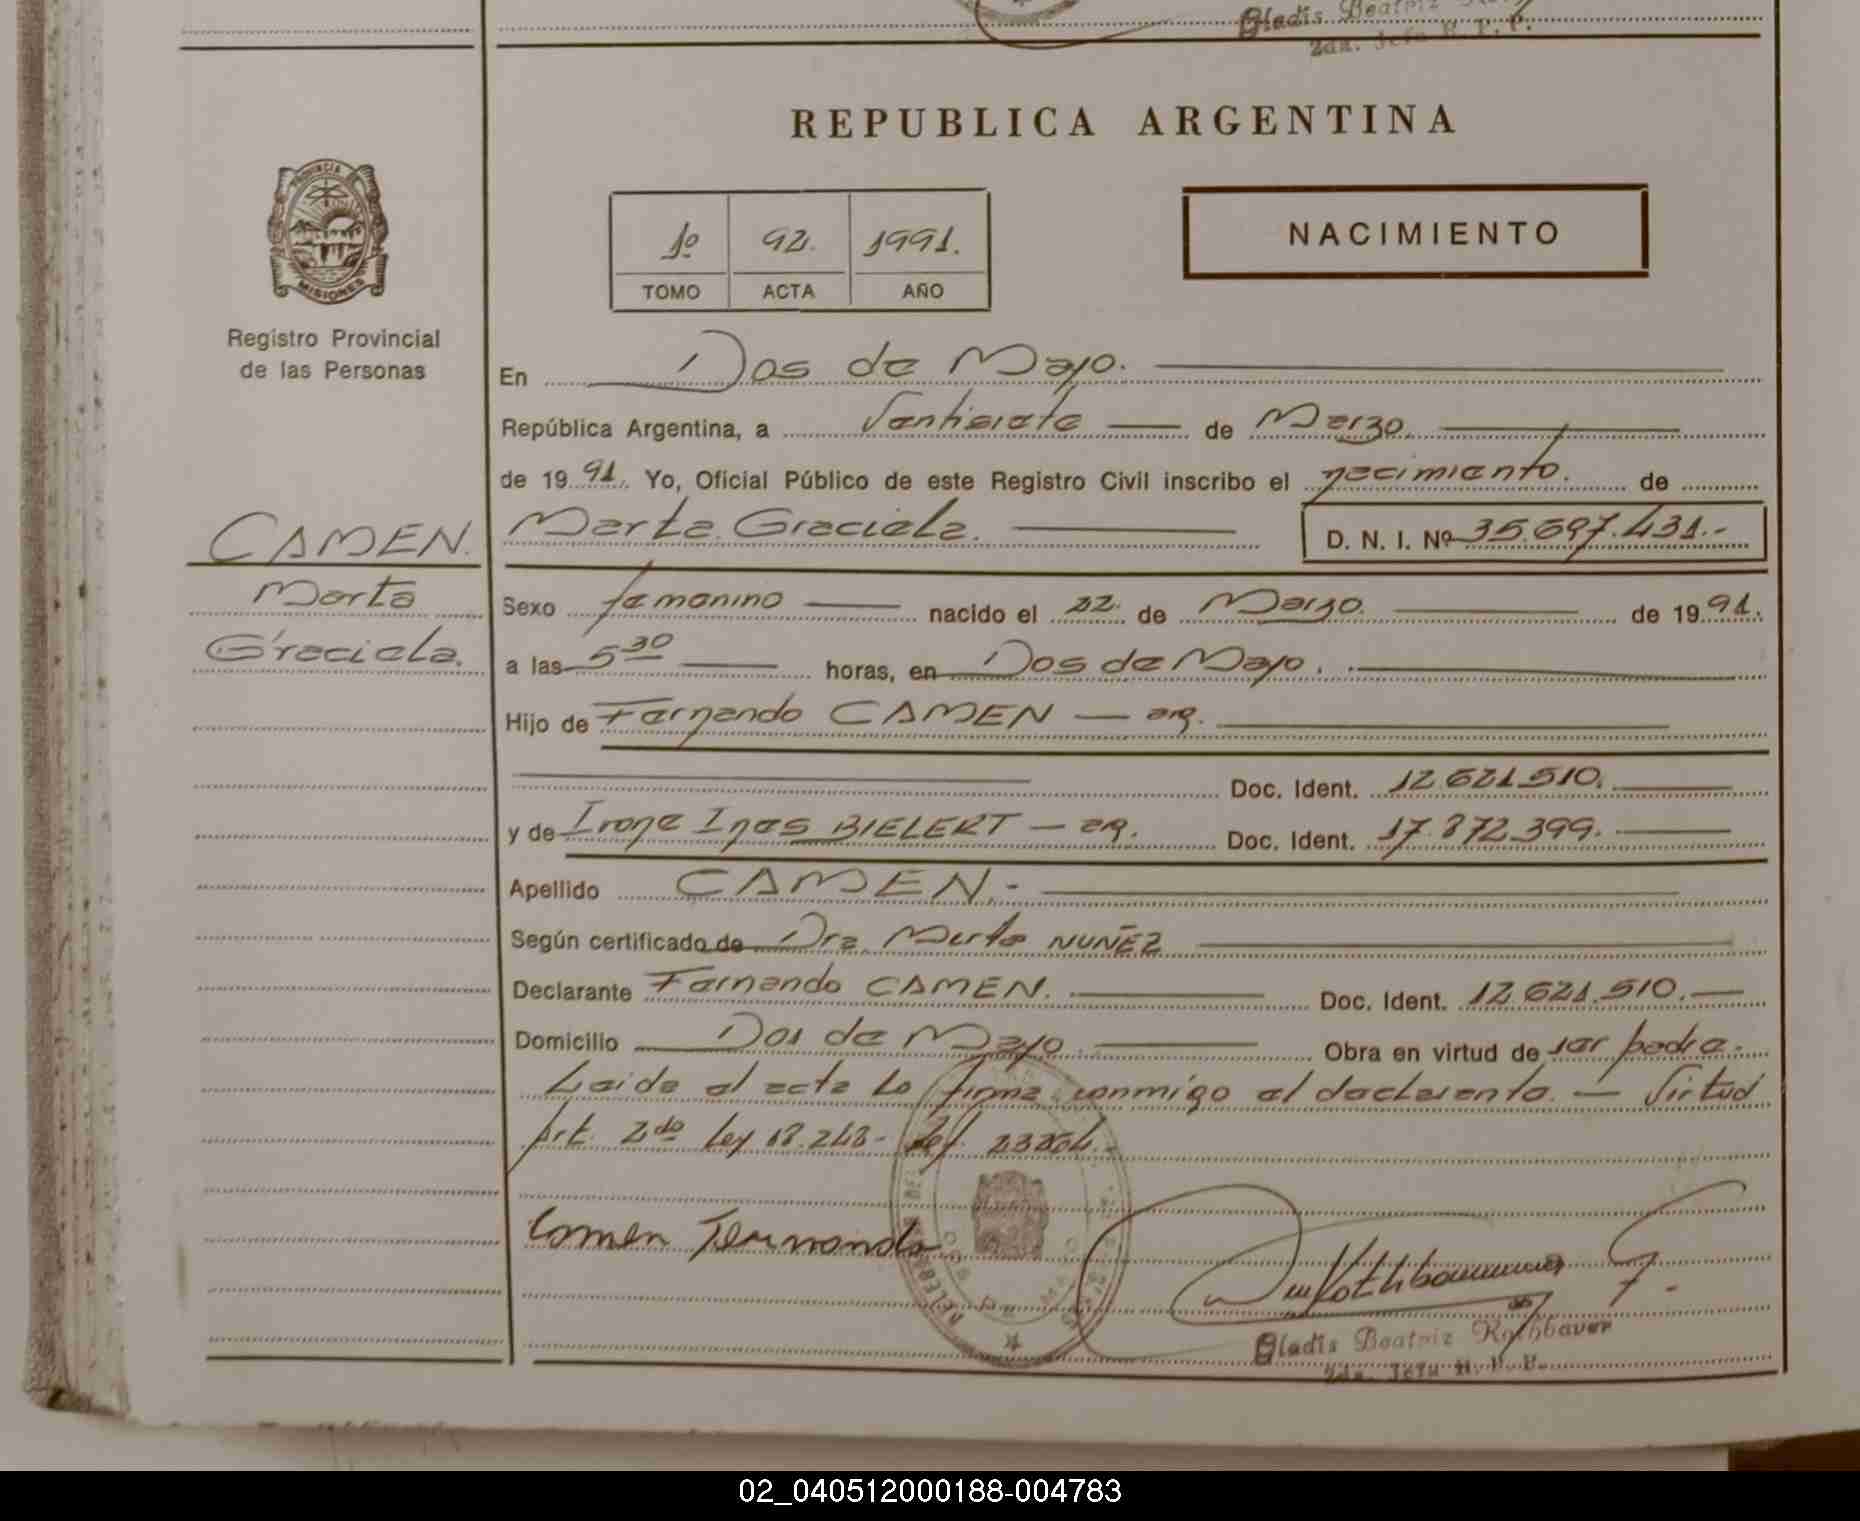 Gladis Beatriz
2da. Jefa R. P. P.
REPUBLICA ARGENTINA
PROVINCIA DE
MISIONES
Registro Provincial
de las Personas
1º 92. 1991.
TOMO ACTA AÑO
NACIMIENTO
En Dos de Mayo.
República Argentina, a Veintisiete de Marzo
de 1991. Yo, Oficial Público de este Registro Civil inscribo el nacimiento. de
CAMEN.
Marta
Graciela.
Marta Graciela. D. N. I. Nº 35.697.431.-
Sexo femenino nacido el 22. de Marzo. de 1991.
a las 5 30 horas, en Dos de Mayo.
Hijo de Fernando CAMEN — arg.
Doc. Ident. 12.621.510.
y de Irene Ines BIELERT — arg. Doc. Ident. 17.872.399.
Apellido CAMEN.-
Según certificado de Dra. Mirta NUÑEZ
Declarante Fernando CAMEN. Doc. Ident. 12.621.510.
Domicilio Dos de Mayo. Obra en virtud de ser padre.
Leida el acta la firma conmigo el declarante. — Virtud
Art. 2do Ley 18.248-
Camen Fernando
Gladis Beatriz Rothbaver
2da. Jefa R. P. P.
02_040512000188-004783